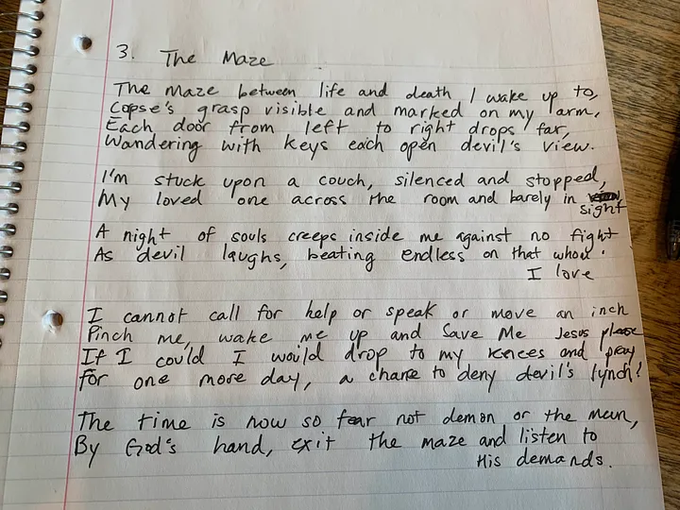 3. The Maze
The Maze between life and death I wake up to,
Copse's grasp visible and marked on my arm.
Each door from left to right drops far,
Wandering with keys each open devil's view.
I'm stuck upon a couch, silenced and stopped,
My loved one across the room and barely in sight
A night of souls creeps inside me against no fight
As devil laughs, beating endless on that whom I love
I cannot call for help or speak or move an inch
Pinch me, wake me up and Save Me Jesus please
If I could I would drop to my knees and pray
For one more day, a chance to deny devil's lynch!
The time is now so fear not demon or the men,
By God's hand, exit the maze and listen to
His demands.